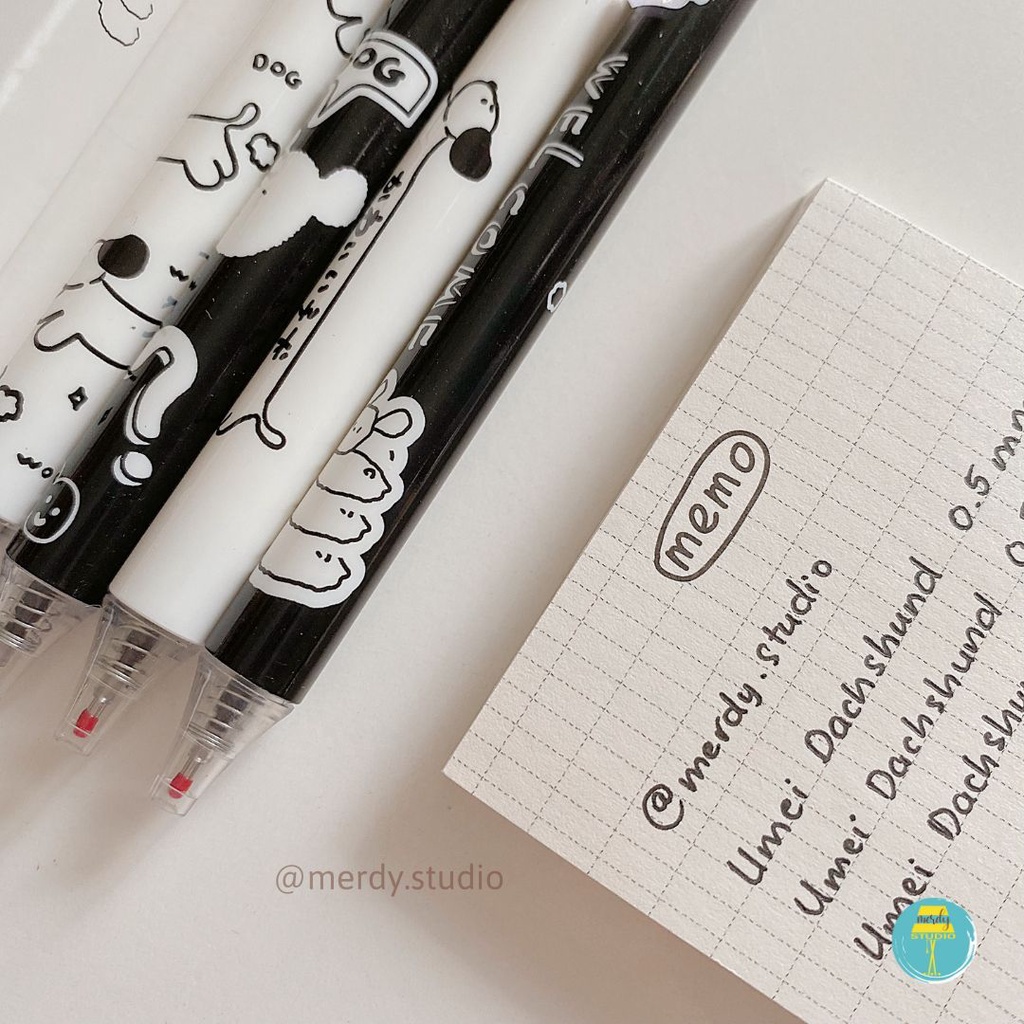 DOG
OG
WELCOME
memo
@merdy.studio
Umei Dachshund 0.5 mm
Umei Dachshund
Umei Dachshu
@merdy.studio
merdy
STUDIO